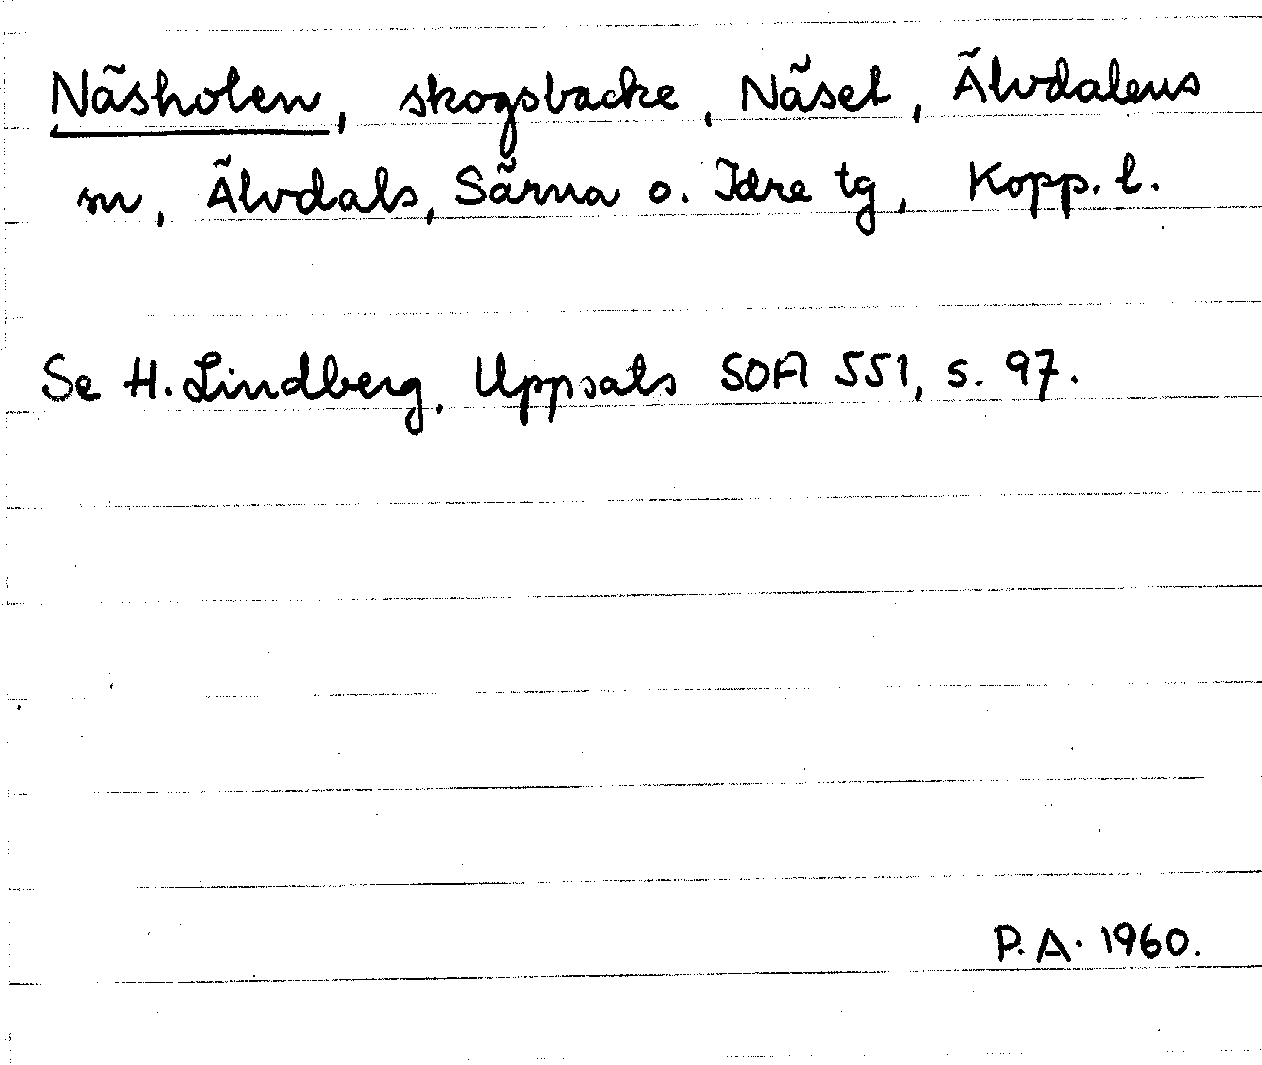 Näsholen, skogsbacke, Näset, Älvdalens
sn, Älvdals, Särna o. Idre tg, Kopp. l.
Se H. Lindberg, Uppsats SOA 551, s. 97.
P.A. 1960.